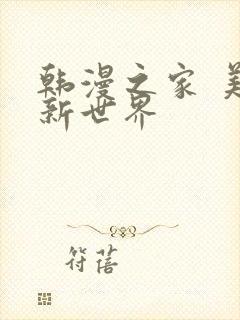 韩漫之家 美
新世界
符蓓